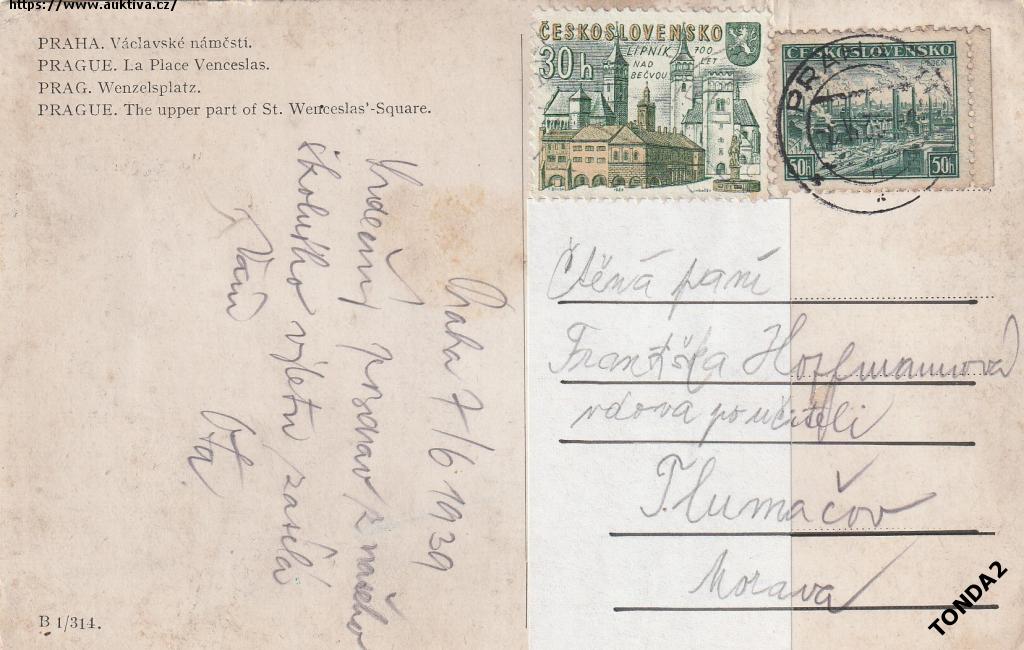 https://www.auktiva.cz/
PRAHA. Václavské náměstí.
PRAGUE. La Place Venceslas.
PRAG. Wenzelsplatz.
PRAGUE. The upper part of St. Wenceslas'-Square.
ČESKOSLOVENSKO
30 h
LIPNÍK
NAD
BEČVOU
700
LET
ČESKOSLOVENSKO
PLZEŇ
50h
50h
PRAHA
Praha 7/6 1939
Srdečný pozdrav z našeho
školního výletu zasílá
Vám
Ota.
Ctěná paní
Františka Hoffmannová
vdova po učiteli
Tlumačov
Morava
B 1/314.
TONDA2